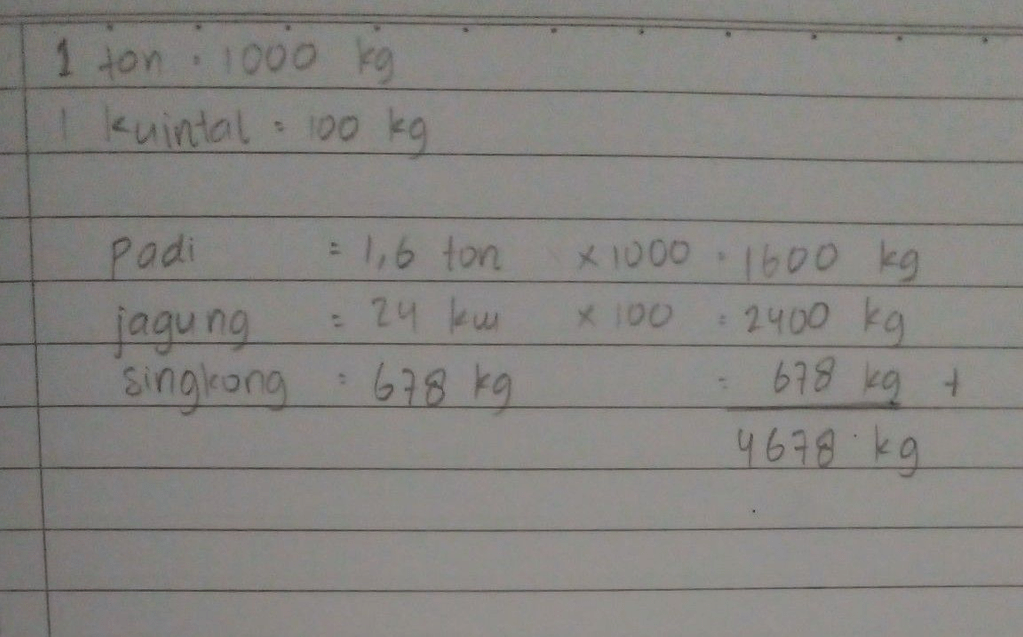 1 ton = 1000 kg
1 kuintal = 100 kg
Padi = 1,6 ton × 1000 = 1600 kg
jagung = 24 kw × 100 = 2400 kg
singkong = 678 kg = 678 kg +
4678 kg